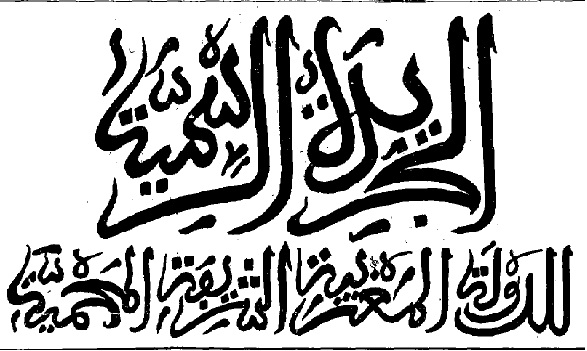 الجريدة الرسمية
للدولة المغربية الشريفة المحمية